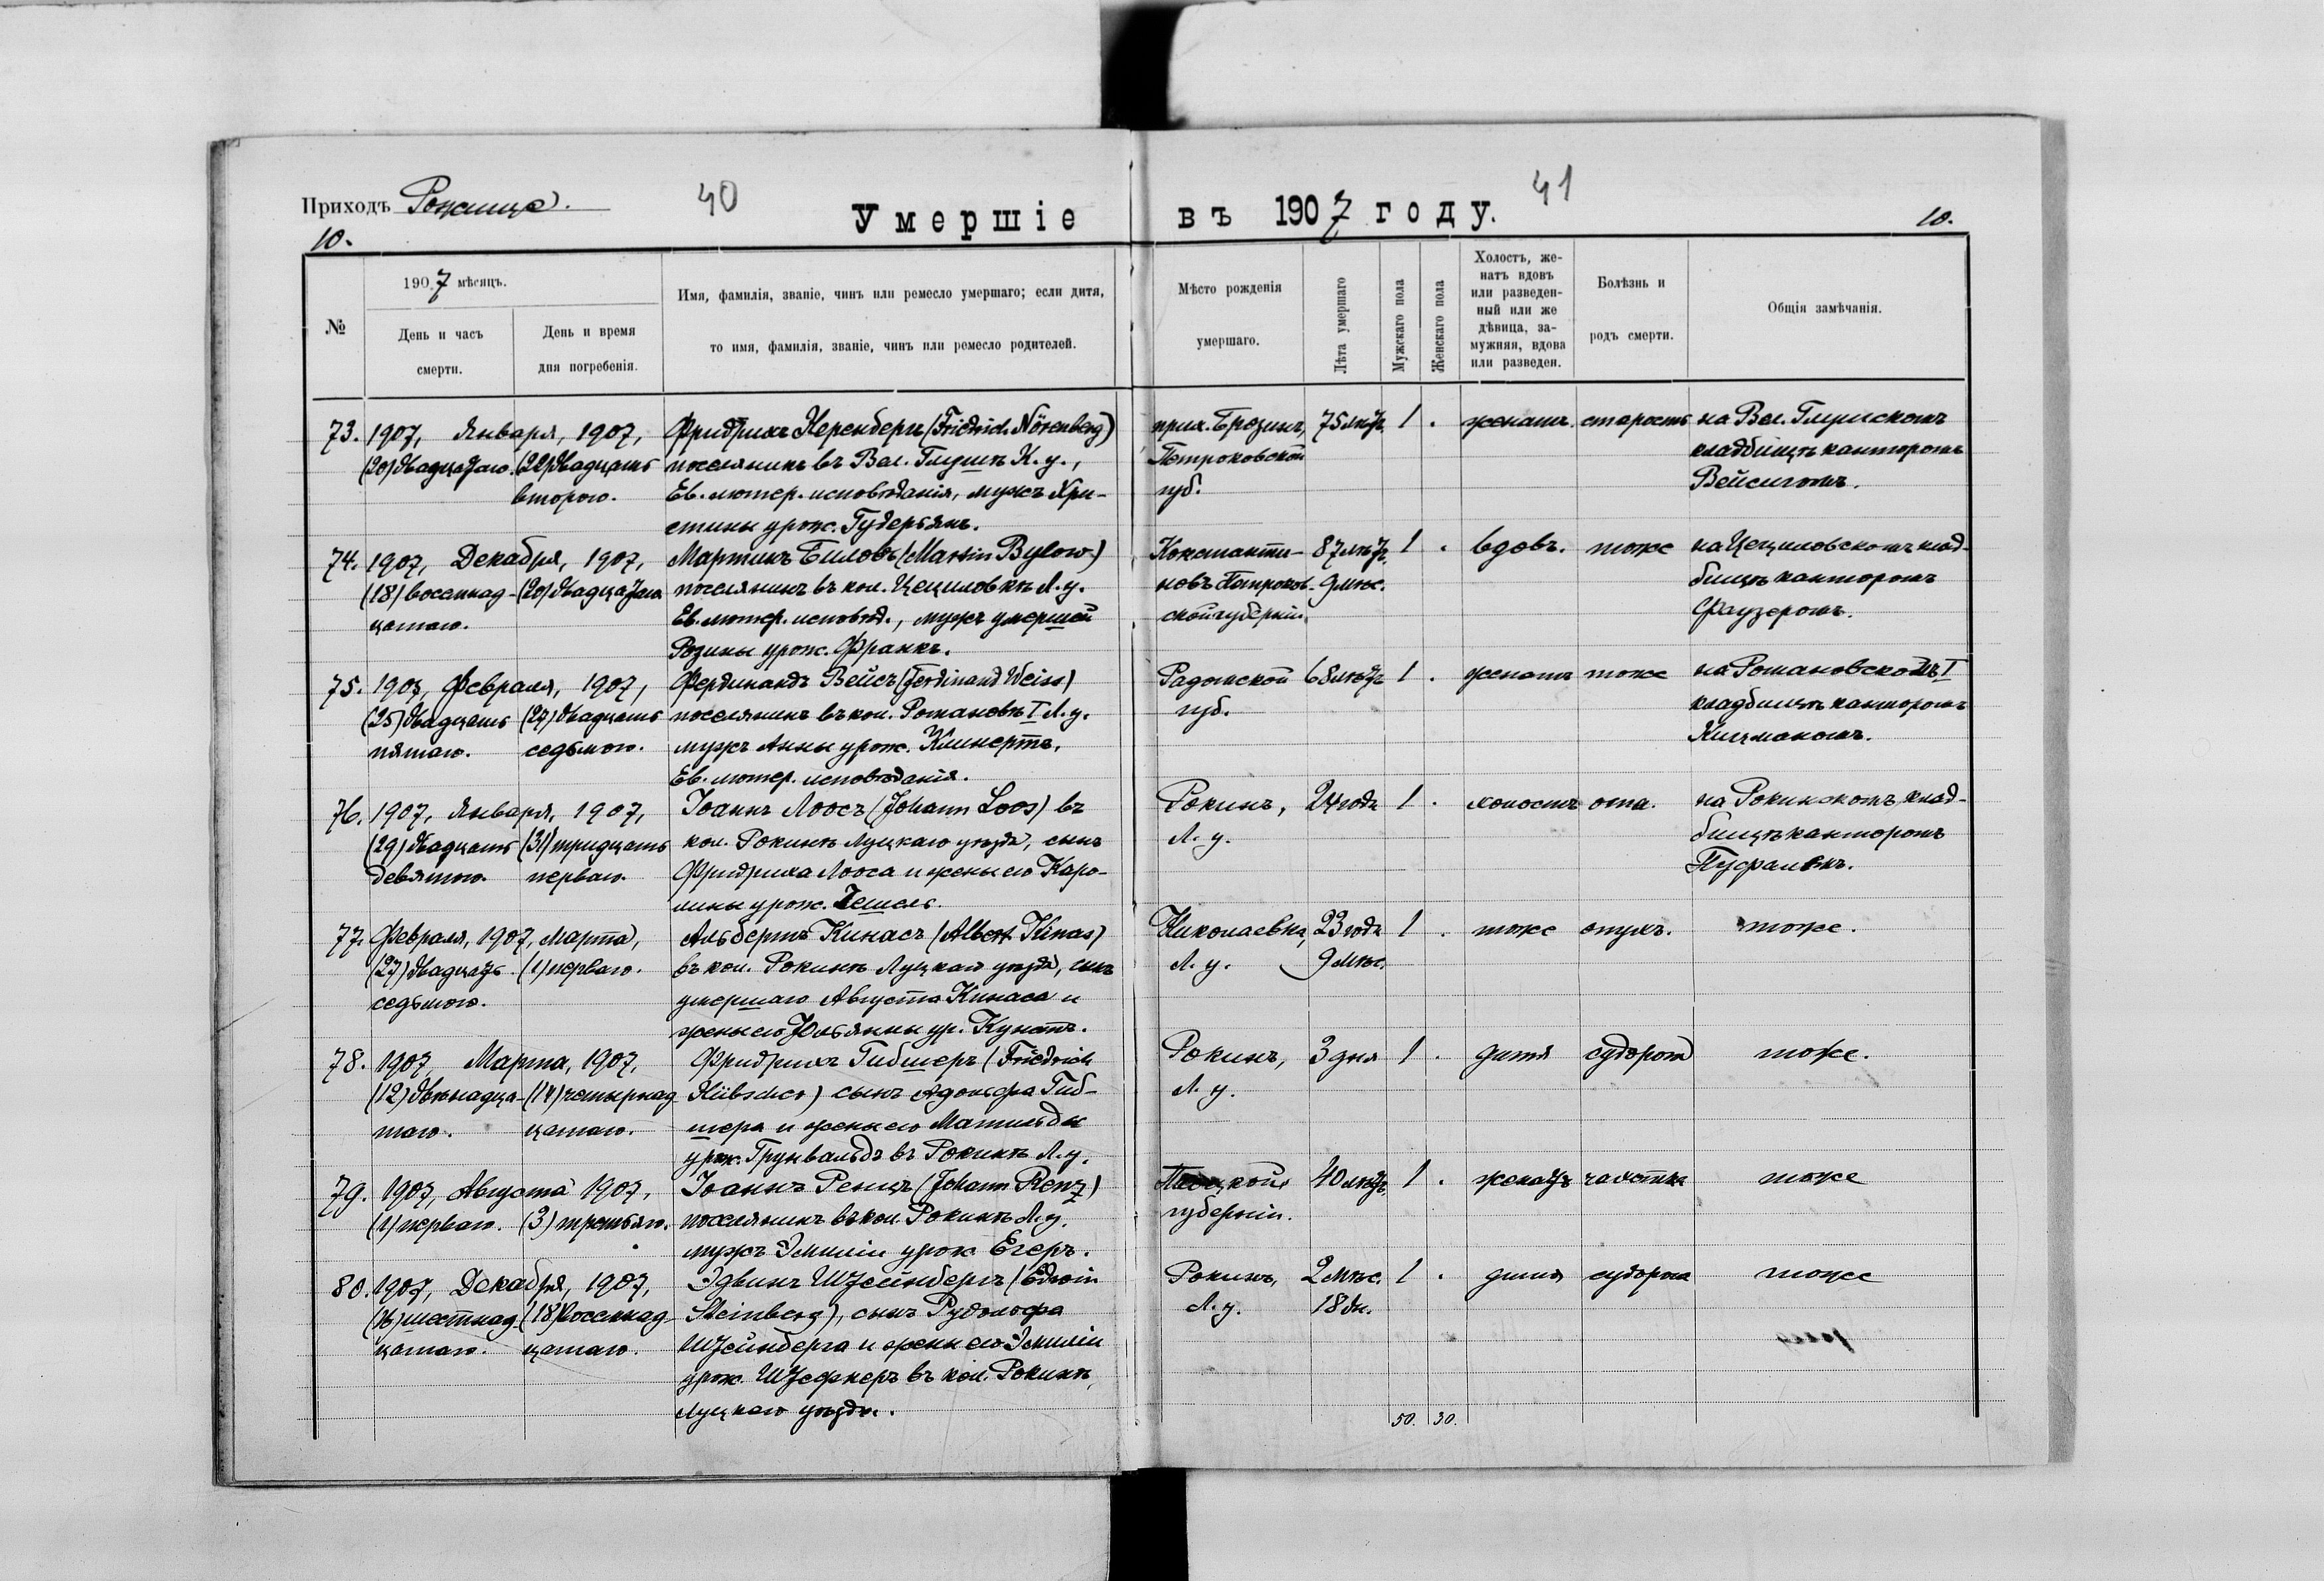 Приходъ Рожище.
40
Умершіе
въ 1907 году.
41
10.
10.
№
1907 мѣсяцъ.
День и часъ
смерти.
День и время
дня погребенія.
Имя, фамилія, званіе, чинъ или ремесло умершаго; если дитя,
то имя, фамилія, званіе, чинъ или ремесло родителей.
Мѣсто рожденія
умершаго.
Лѣта умершаго
Мужскаго пола
Женскаго пола
Холостъ, же-
натъ вдовъ
или разведен-
ный или же
дѣвица, за-
мужняя, вдова
или разведен.
Болѣзнь и
родъ смерти.
Общія замѣчанія.
73. 1907, Января, 1907, Фридрихъ Неренбергъ (Friedrich Nörenberg) прих. Брезинъ, 75 лѣтъ 1 . женатъ старость на Вел. Глушскомъ
(20) двадцатаго. (22) двадцать поселянинъ въ Вел. Глушѣ К. у., Петроковской кладбищѣ канторомъ
второго. Ев. лютер. исповѣданія, мужъ Хри- губ. Вейсигомъ.
стины урож. Гудерьянъ.
74. 1907, Декабря, 1907, Мартинъ Биловъ (Martin Bylow) Константи- 87 лѣтъ 1 . вдовъ. тоже на Цециловскомъ клад-
(18) восемнад- (20) двадцатаго поселянинъ въ кол. Цециловкѣ Л. у. новъ Петроков- 9 мѣс. бищѣ канторомъ
цатаго. Ев. лютер. исповѣд., мужъ умершей ской губерніи. Фаузеромъ.
Розины урож. Франкъ.
75. 1907, Февраля, 1907, Фердинандъ Вейсъ (Ferdinand Weiss) Радомской 68 лѣтъ 1 . женатъ тоже на Романовскомъ I
(25) двадцать (27) двадцать поселянинъ въ кол. Романовѣ I Л. у. губ. кладбищѣ канторомъ
пятаго. седьмого. мужъ Анны урож. Клинертъ. Кицманомъ.
Ев. лютер. исповѣданія.
76. 1907, Января, 1907, Іоаннъ Лоосъ (Johann Loos) въ Рокинъ, 24 года 1 . холостъ оспа. на Рокинскомъ клад-
(29) двадцать (31) тридцать кол. Рокинѣ Луцкаго уѣзда, сынъ Л. у. бищѣ канторомъ
девятого. перваго. Фридриха Лооса и жены его Каро-
лины урож.
77. Февраля, 1907, Марта, Альбертъ Кинасъ (Albert Kinas) Николаевка, 23 года 1 . тоже опухъ. тоже.
(27) двадцать (1) перваго. въ кол. Рокинѣ Луцкаго уѣзда, сынъ Л. у. 9 мѣс.
седьмого. умершаго Августа Кинаса и
жены его Юльянны ур. Кунстъ.
78. 1907, Марта, 1907, Фридрихъ Гибшеръ (Friedrich Рокинъ, 3 дня 1 . дитя судорога тоже.
(12) двѣнадца- (14) четырнад- Hübscher) сынъ Адольфа Гиб- Л. у.
таго. цатаго. шера и жены его Матильды
урож. Грунвальдъ въ Рокинѣ Л. у.
79. 1907, Августа 1907, Іоаннъ Ренцъ (Johann Renz) 40 лѣтъ 1 . женатъ чахотка тоже
(1) перваго. (3) третьяго. поселянинъ въ кол. Рокинѣ Л. у. губерніи.
мужъ Эмиліи урож Егеръ.
80. 1907, Декабря, 1907, Эдвинъ Штейнбергъ (Edwin Рокинъ, 2 мѣс. 1 . дитя судорога тоже
(16) шестнад- (18) восемнад- Steinberg), сынъ Рудольфа Л. у. 18 дн.
цатаго. цатаго. Штейнберга и жены его Эмиліи
урож. Штефнеръ въ кол. Рокинѣ,
Луцкаго уѣзда.
50. 30.